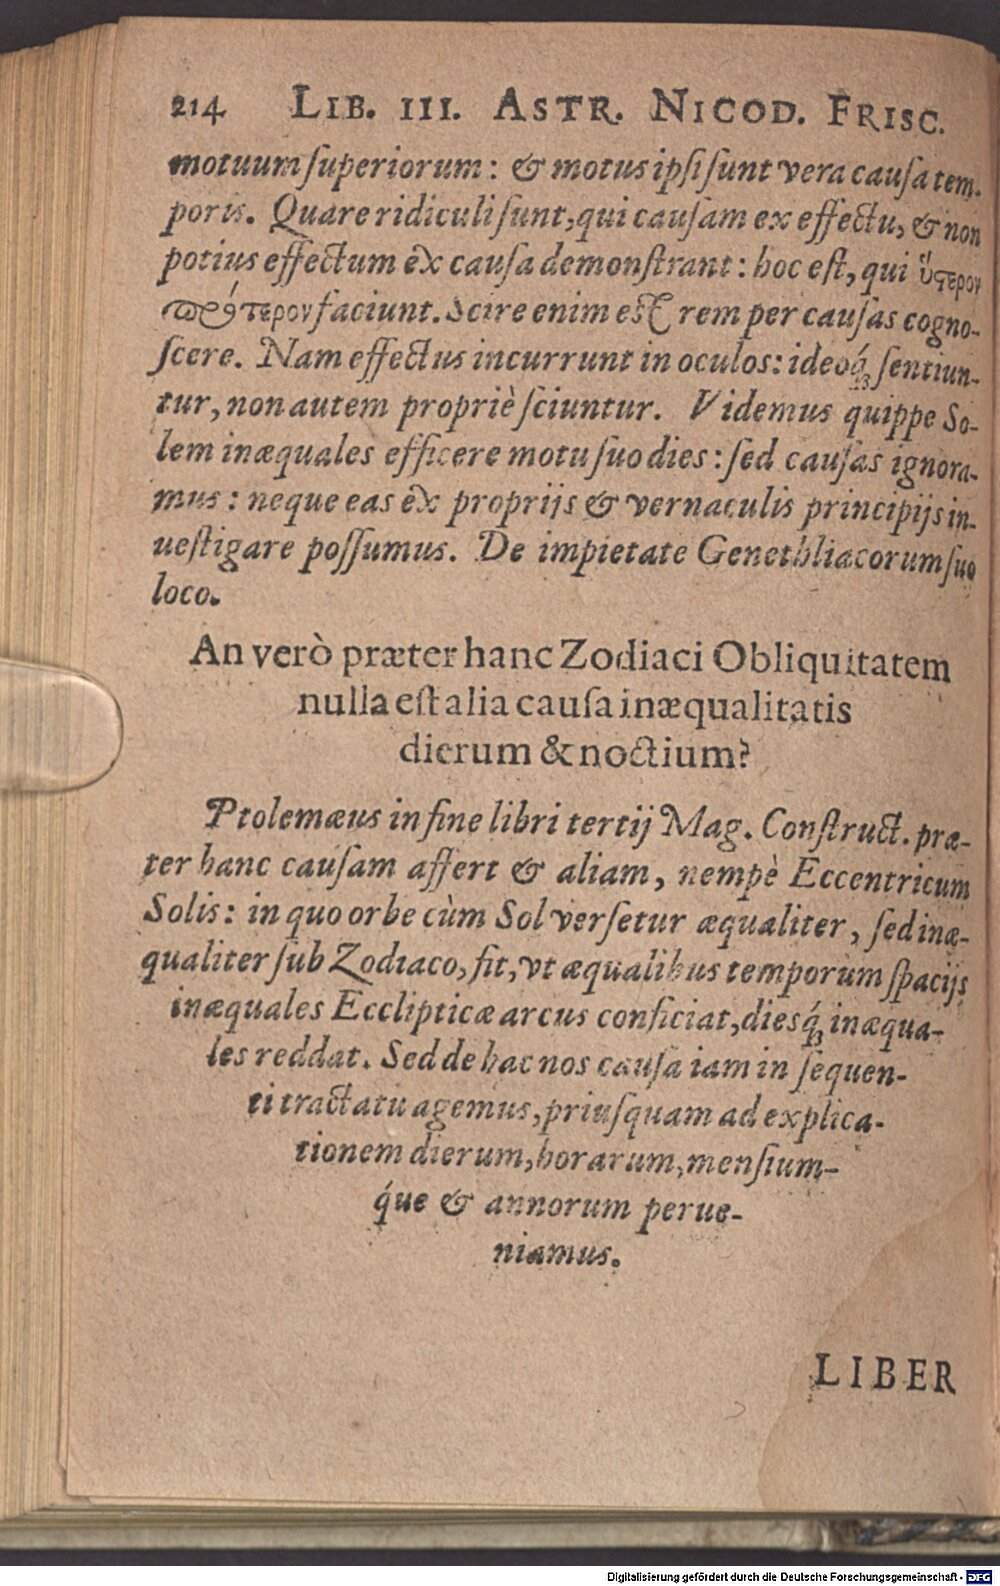 214 LIB. III. ASTR. NICOD. FRISC.
motuum ſuperiorum: & motus ipſi ſunt vera cauſa tem-
poris. Quare ridiculi ſunt, qui cauſam ex effectu, & non
potius effectum ex cauſa demonſtrant: hoc eſt, qui ὕςερον
πρότερον faciunt. Scire enim eſt rem per cauſas cogno-
ſcere. Nam effectus incurrunt in oculos: ideoq́; ſentiun-
tur, non autem propriè ſciuntur. Videmus quippe So-
lem inæquales efficere motu ſuo dies: ſed cauſas ignora-
mus: neque eas ex proprijs & vernaculis principijs in-
ueſtigare poſſumus. De impietate Genethliacorum ſuo
loco.
An verò præter hanc Zodiaci Obliquitatem
nulla eſt alia cauſa inæqualitatis
dierum & noctium?
Ptolemæus in fine libri tertij Mag. Conſtruct. præ-
ter hanc cauſam affert & aliam, nempè Eccentricum
Solis: in quo orbe cùm Sol verſetur æqualiter, ſed inæ-
qualiter ſub Zodiaco, fit, vt æqualibus temporum ſpacijs
inæquales Eccliptic&aelig; arcus conficiat, diesq́; inæqua-
les reddat. Sed de hac nos cauſa iam in ſequen-
ti tractatu agemus, priuſquam ad explica-
tionem dierum, horarum, menſium-
q́ue & annorum perue-
niamus.
LIBER
Digitalisierung gefördert durch die Deutsche Forschungsgemeinschaft - DFG